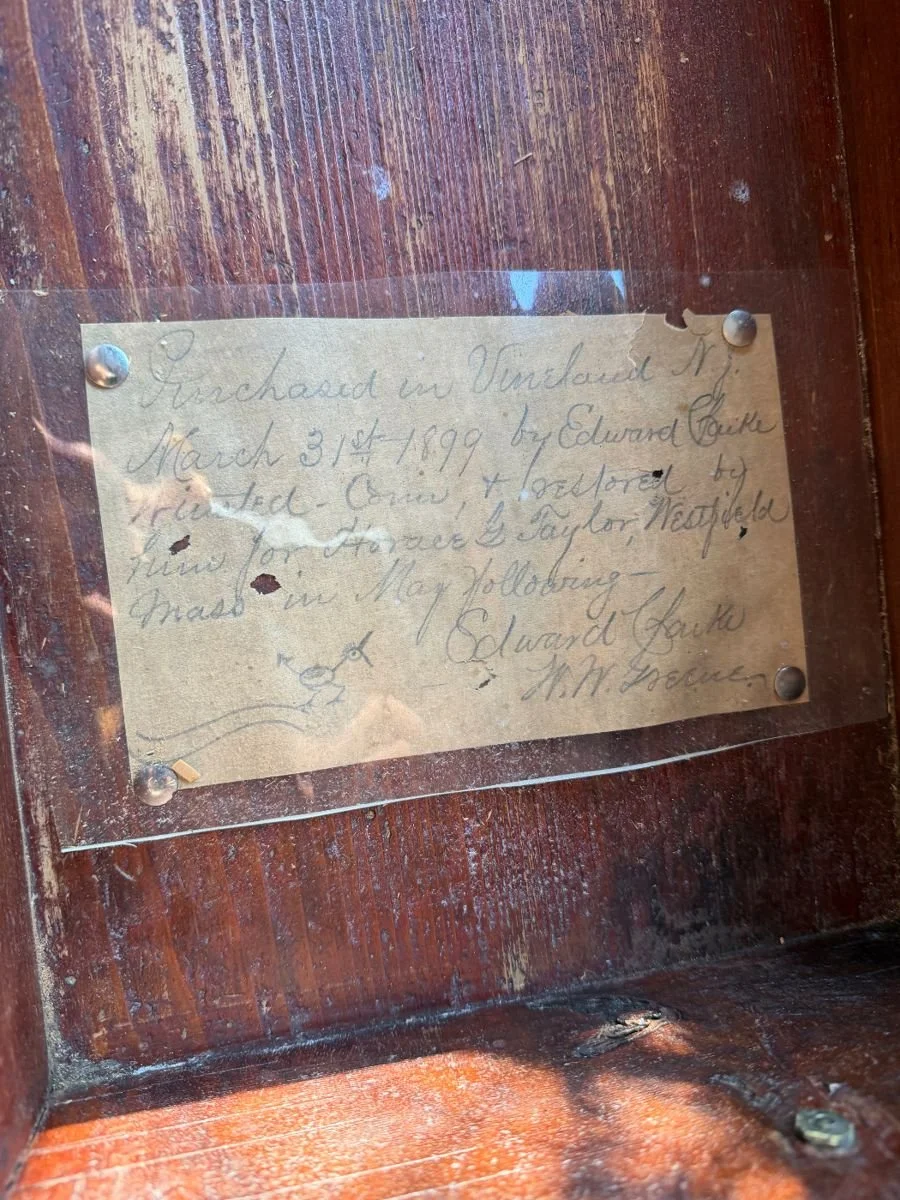 Purchased in Vineland N.J.
March 31st 1899 by Edward Clarke
Conn, & restored by
him for Horace G Taylor, Westfield
Mass in May following—
Edward Clarke
W. W. Greene.